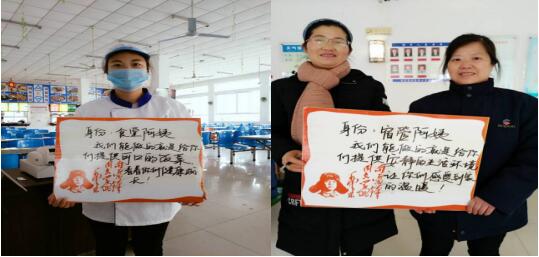 身份：食堂阿姨
我们能做的就是给你
们提供可口的饭菜，
看着你们健康成
长！
身份：宿管阿姨
我们能做的就是给你
们提供安静的生活环境
让你们感受到家
的温暖！